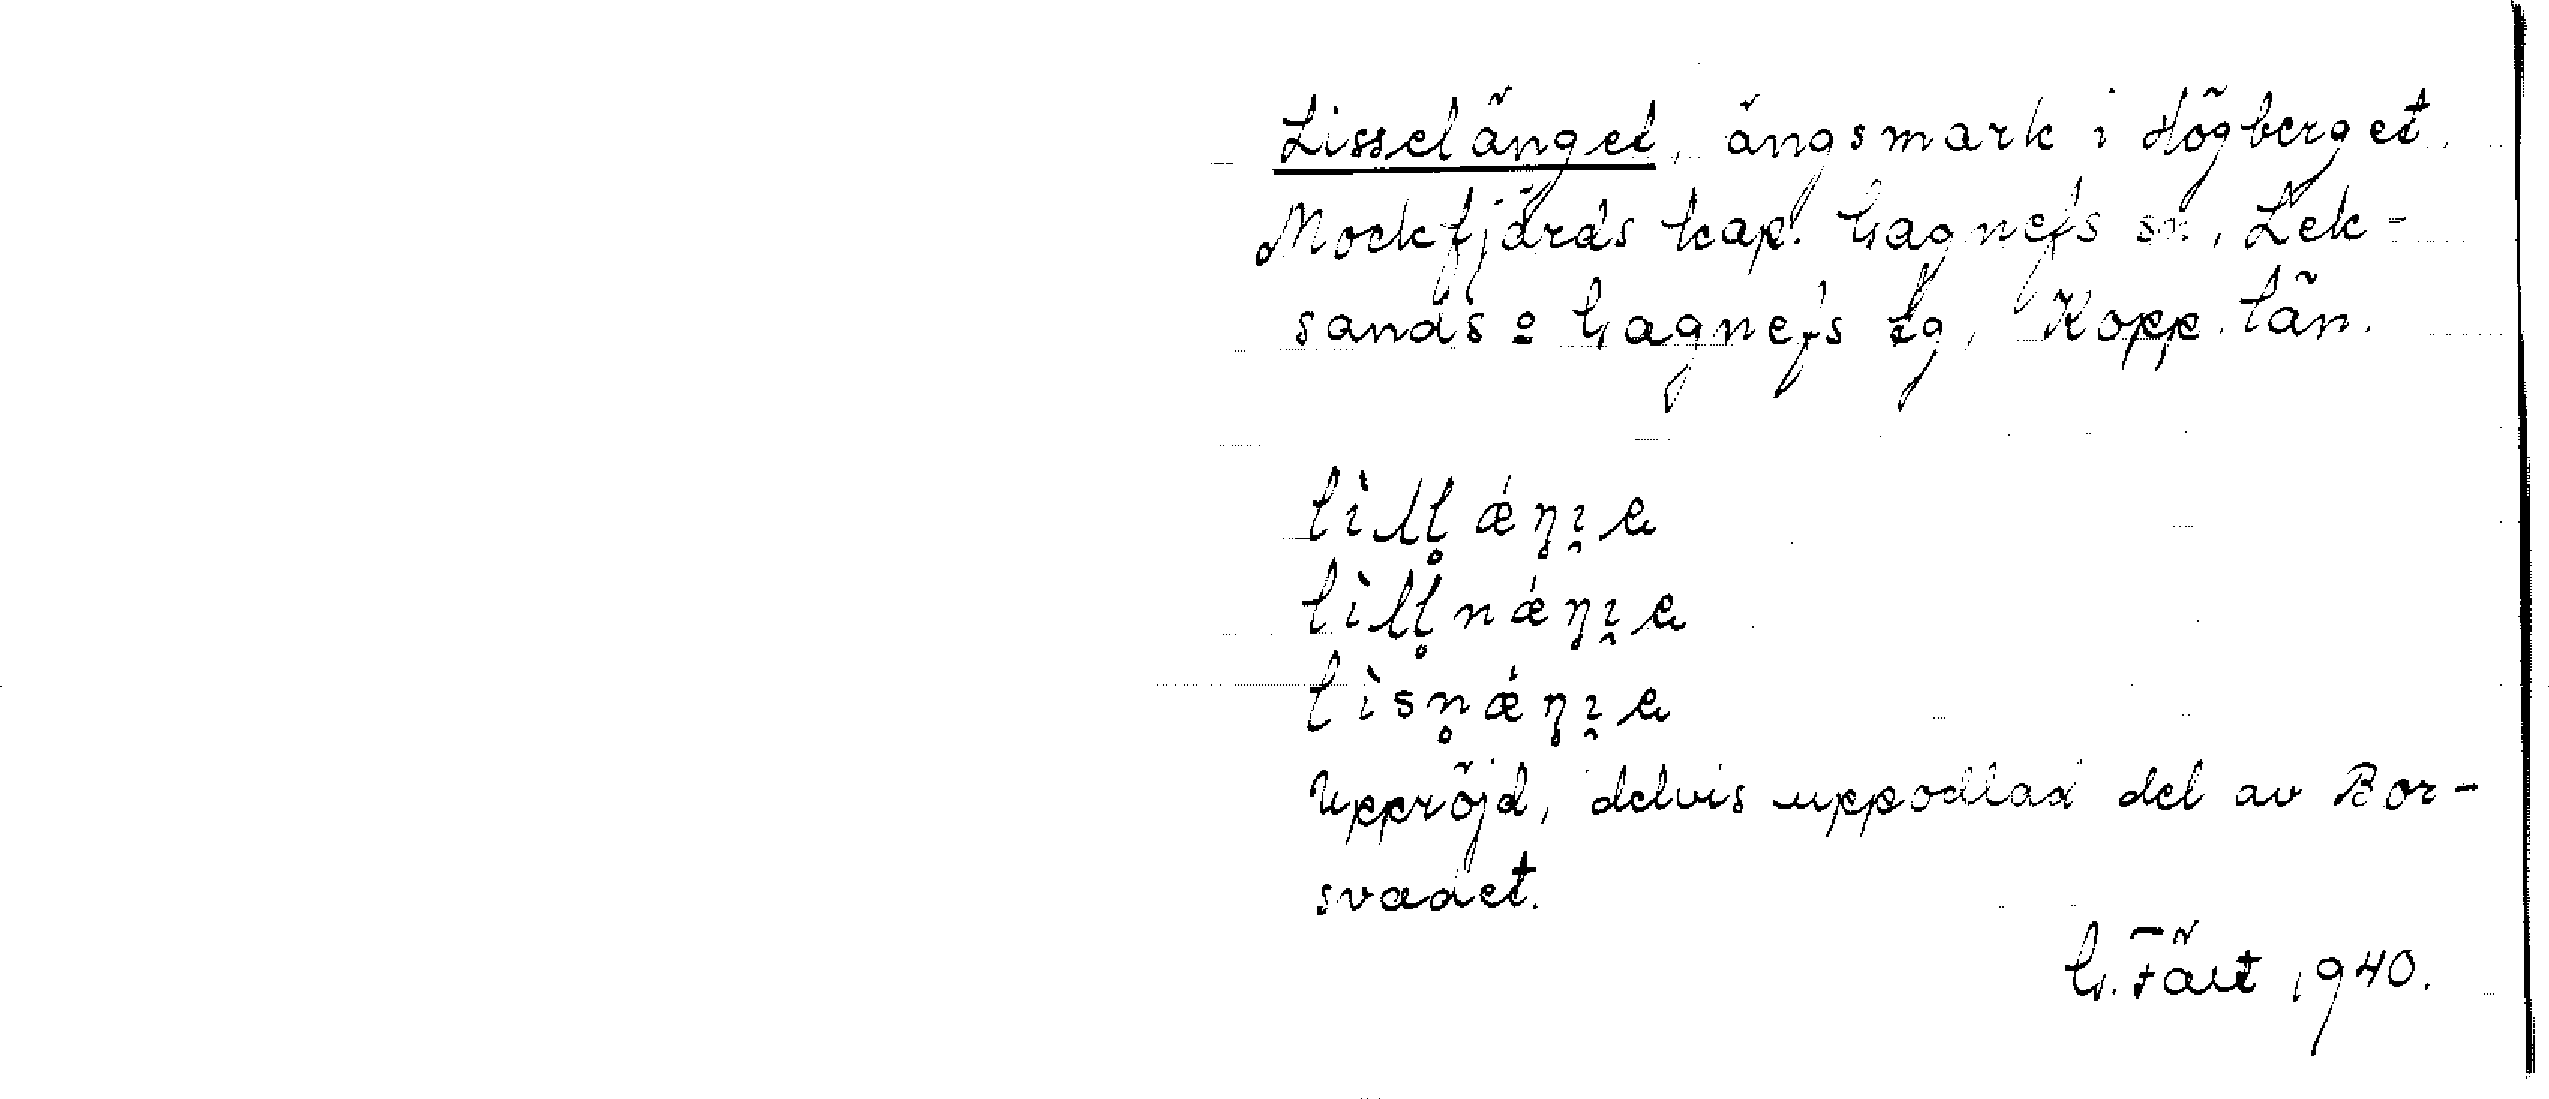 Lisselänget, ängsmark i Högberget,
Mockfjärds kap. Gagnefs sn, Lek-
sands o Gagnefs tg, Kopp. län.
lìll̥ǽŋɪ̯e
lìll̥nǽŋɪ̯e
lìsn̥ǽŋɪ̯e
Uppröjd, delvis uppodlad del av Bor-
svadet.
G. Fält 1940.